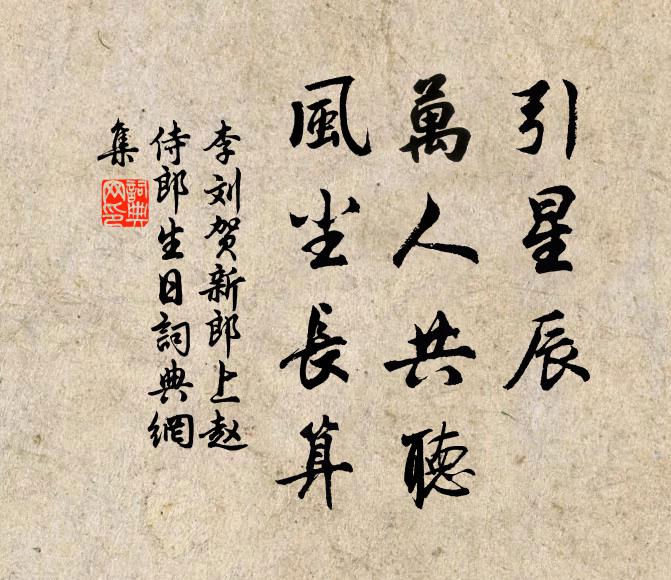 引星辰
萬人共聽
風尘長算
李刘贺新郎上赵
侍郎生日詞典網
集
詞典網印